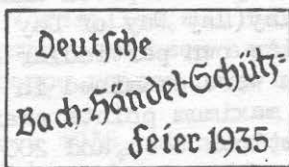 Deutsche
Bach-Händel-Schütz=
Feier 1935